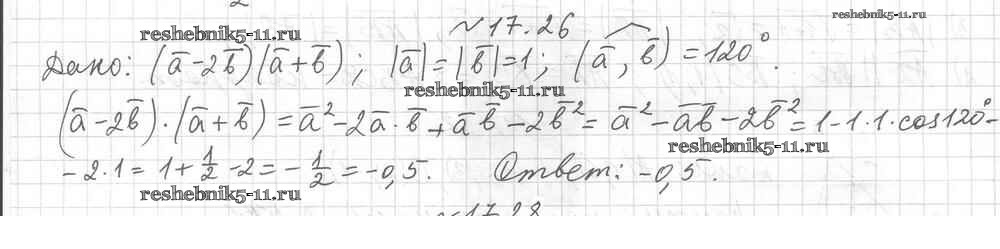 reshebnik5-11.ru
№ 17.26
reshebnik5-11.ru
Дано: (a̅ - 2b̅)(a̅ + b̅); |a̅| = |b̅| = 1; (a̅, b̅) = 120°.
reshebnik5-11.ru
(a̅ - 2b̅)·(a̅ + b̅) = a̅² - 2a̅·b̅ + a̅b̅ - 2b̅² = a̅² - a̅b̅ - 2b̅² = 1 - 1·1·cos120° -
reshebnik5-11.ru
- 2·1 = 1 + 1/2 - 2 = - 1/2 = -0,5. Ответ: -0,5.
reshebnik5-11.ru
№ 17.28